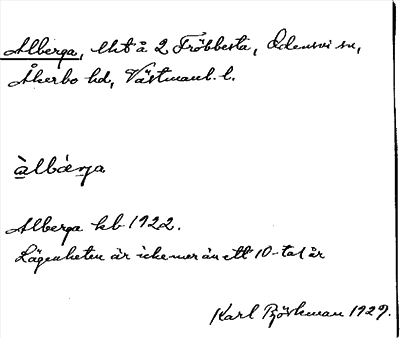 Alberga, lht å 2 Fröbbesta, Odensvi sn,
Åkerbo hd, Västmanl. l.
àlbærja
Alberga kb 1922.
Lägenheten är icke mer än ett 10-tal år
Karl Björkman 1929.